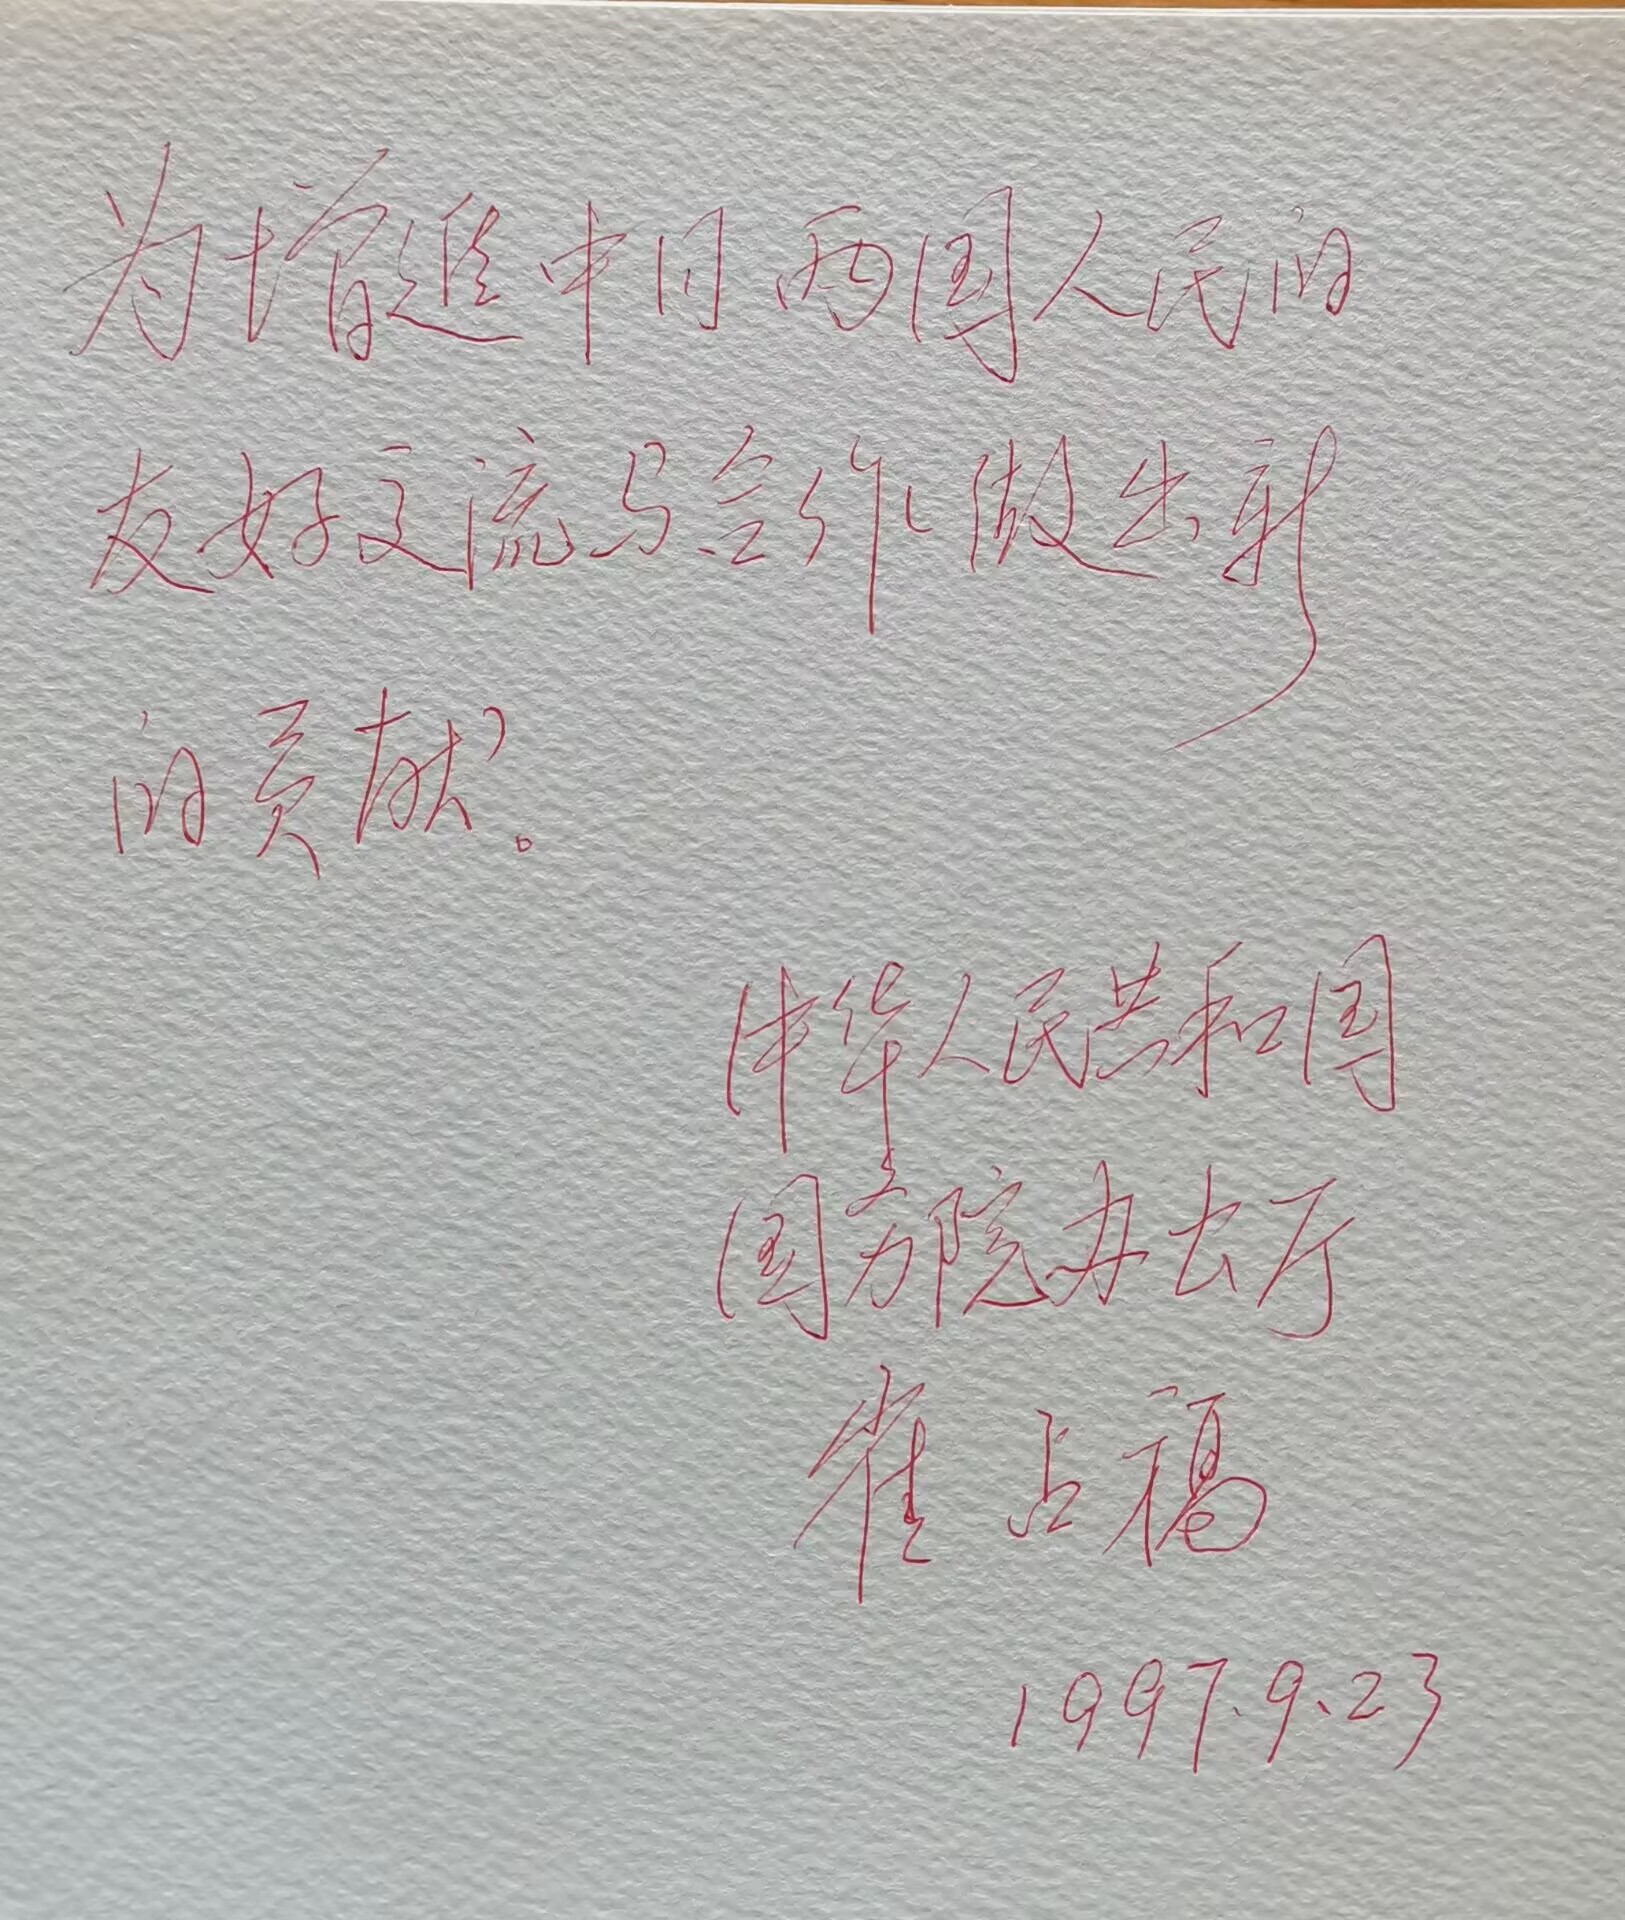 为增進中日两国人民的
友好交流与合作做出新
的贡献。
中华人民共和国
国务院办公厅
崔占福
1997.9.23